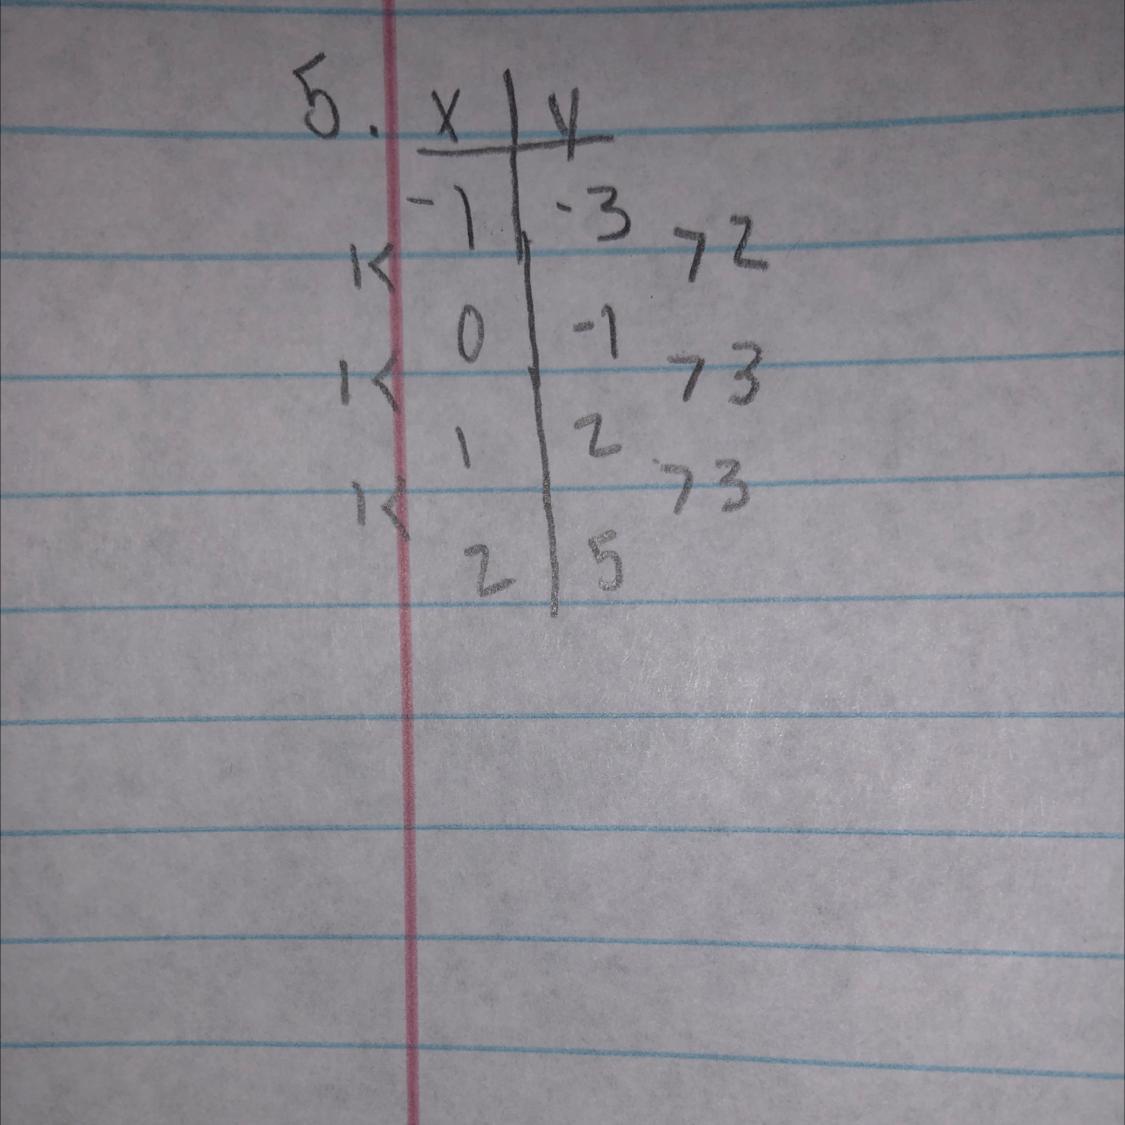 5. x | y
-1 | -3
1< >2
0 | -1
1< >3
1 | 2
1< >3
2 | 5